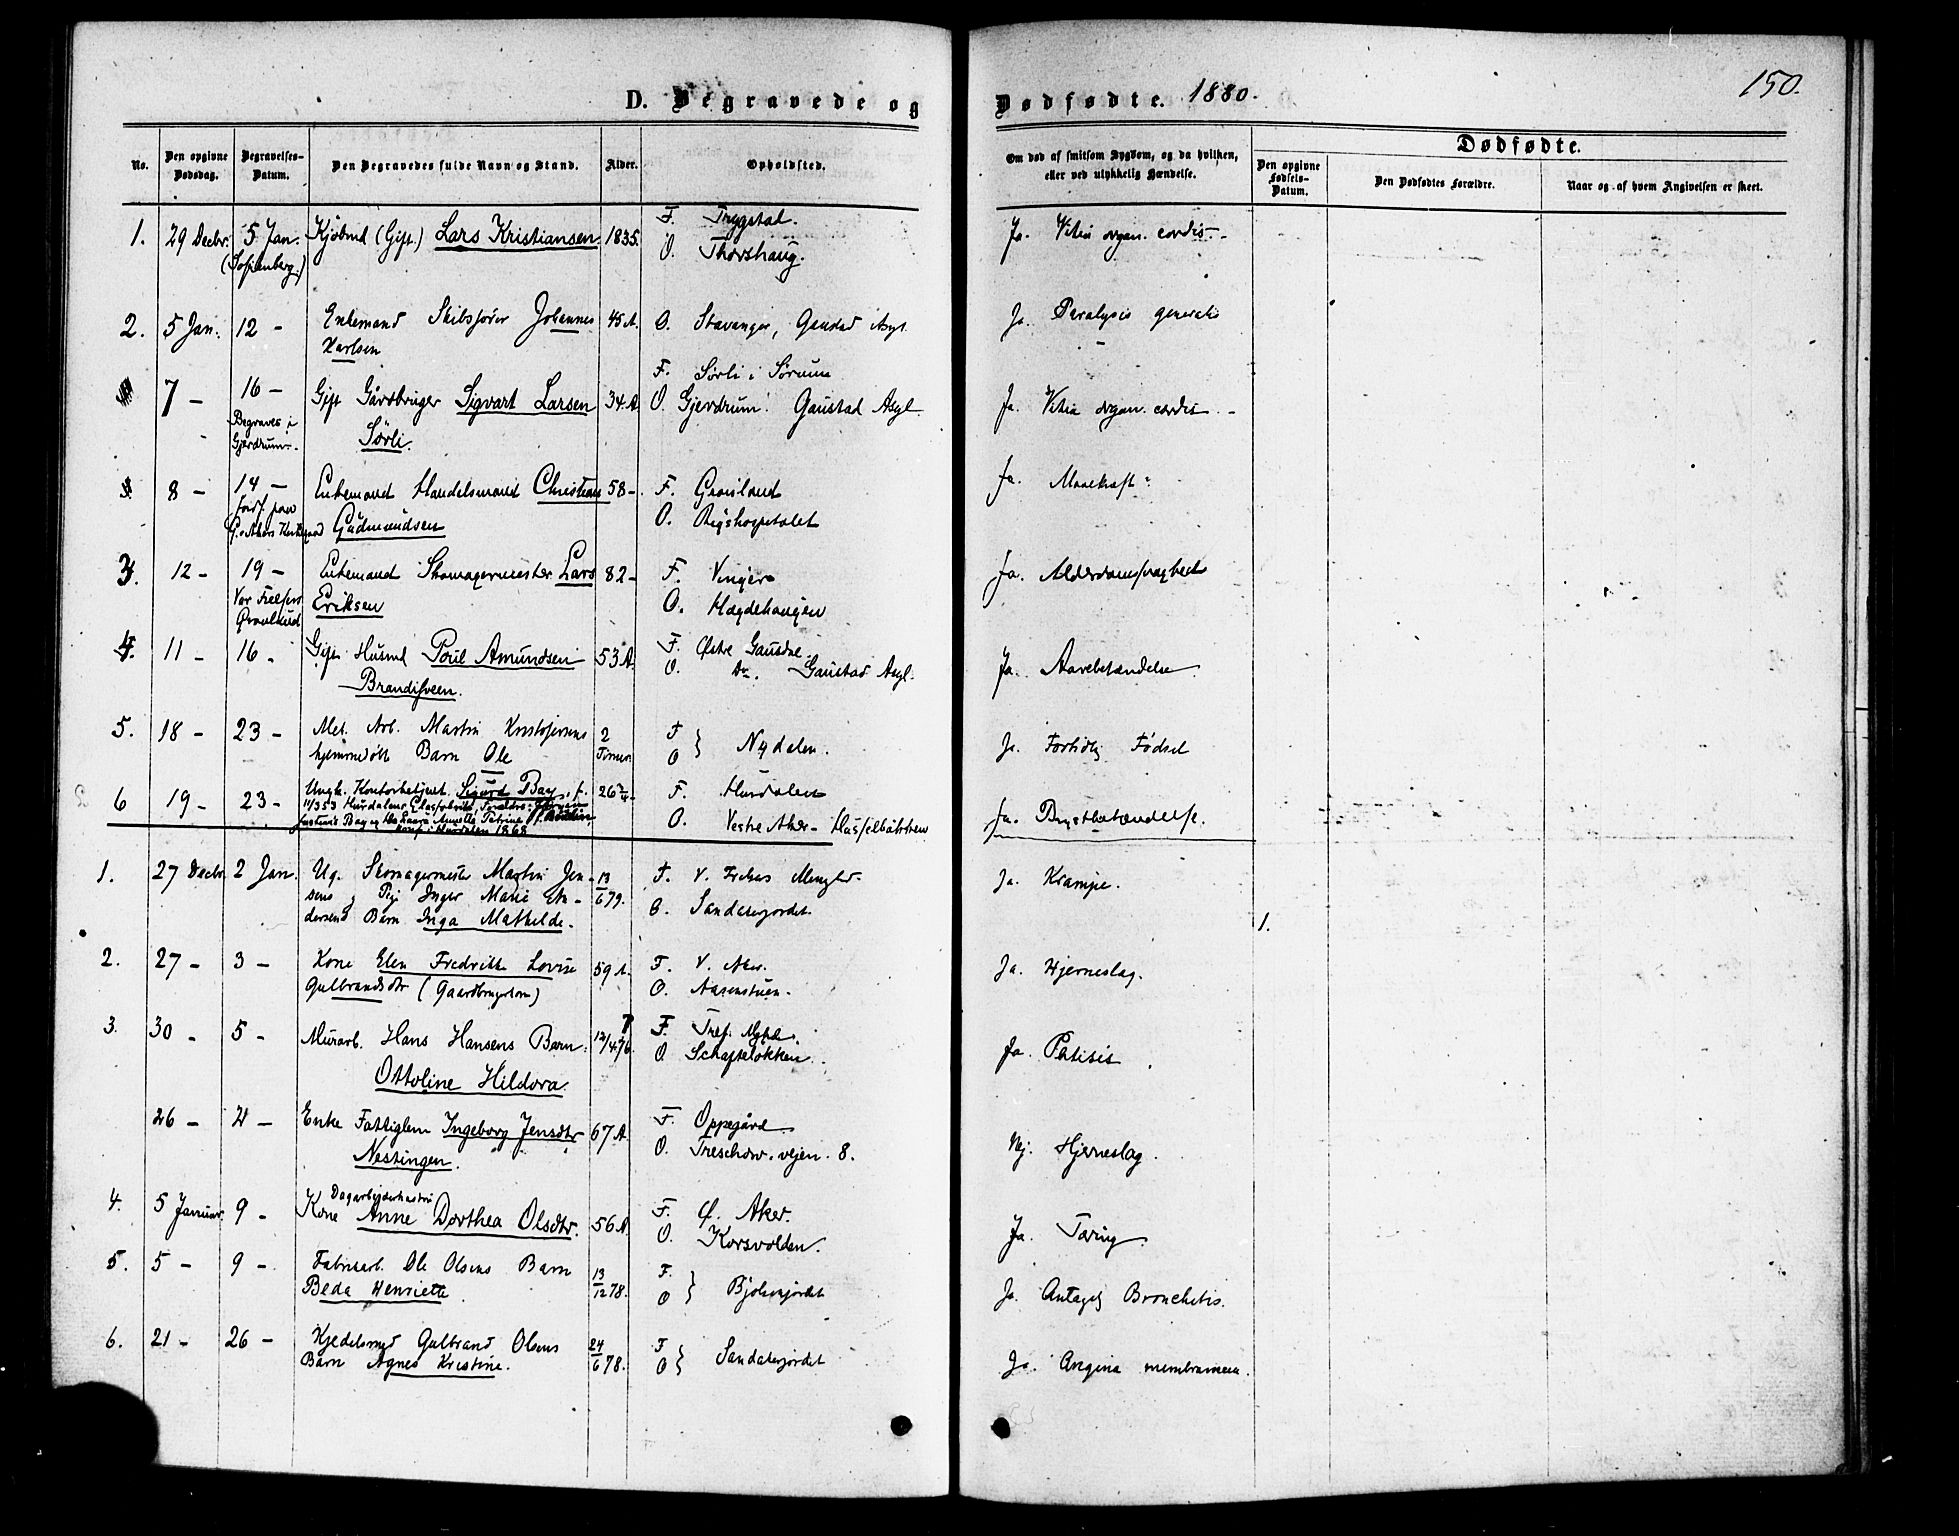 D. Begravede og Dødfødte. 1880. 150.
No. Den opgivne Dødsdag. Begravelses-Datum. Den Begravedes fulde Navn og Stand. Alder. Opholdssted. Om død af smitsom Sygdom, og da hvilken, eller ved ulykkelig Hændelse. Dødfødte.
Den opgivne Fødsels-Datum. Den Dødfødtes Forældre. Naar og af hvem Angivelsen er skeet.
1. 29 Decbr. 5 Jan. Kjøbmd (Gift.) Lars Kristiansen 1835. F. Trygstad. Ja. Vitia organ. cordis
(Sofienberg.) O. Thorshaug.
2. 5 Jan. 12 - Enkemand Skibsfører Johannes 45 A. O. Stavanger, Gaustad Asyl. Ja. Paralysis generalis
Karlsen
7 - 16 - Gift Gårdbruger Sigvart Larsen 34 A. F. Sørli i Sørum Ja. Vitia organ. cordis -
Begraves i Gjerdrum. Sørli. O. Gjerdrum. Gaustad Asyl.
8 - 14 - Enkemand Handelsmand Christian 58 - F. Grønland Ja. Marekraft
Gudmundsen O. Rigshospitalet
3. 12 - 19 - Enkemand Skomagermester Lars 82 - F. Vinger Ja. Alderdomssvaghed
Vor Frelsers Gravlund Eriksen O. Hægdehaugen
4. 11 - 16 - Gift Husmd Poul Amundsen 53 A. F. Østre Gausdal. Ja. Aarebetændelse
Brandisveen. O. Do. Gaustad Asyl.
5. 18 - 23 - Met. Arb. Martin Kristofersens 2 Timer F O } Nydalen. Ja. Fortidlig Fødsel
hjemmedøbt Barn Ole
6 19 - 23 - Ungk. Kontorbetjent. Sigurd Bay, f. 26 F. Hurdalen Ja. Brystbetændelse.
O. Vestre Aker - Hasselbakken
konf. i Hurdalen 1868
1. 27 Decbr. 2 Jan. Ug. Skomagermester Martin Jen- 13/6 79. F. V. Frelsers Menighed. Ja. Krampe.
sens og Pige Inger Marie An- O. Sandakerjordet.
dersens Barn Inga Mathilde. 1.
2. 27 - 3 - Kone Elen Fredrikke Lovise 59 A. F. V. Aker. Ja. Hjerneslag.
Gulbrandsdtr (Gaardbrugerkone) O. Aasenstuen.
3. 30 - 5 - Murarb. Hans Hansens Barn: 12/4 76. F. Tref. Mghd. Ja. Phtisis
Ottoline Hildora. O. Schafteløkken.
26 - 2 - Enke Fattiglem Ingeborg Jensdtr 67 A. F. Oppegård Nej. Hjerneslag.
Nestingen. O. Treschow. vejen. 8.
4. 5 Januar 9 - Dagarbejderhustru
Kone Anne Dorthea Olsdtr. 56 A F. Ø. Aker. Ja. Tæring.
O. Korsvolden.
5. 5 - 9 - Fabrikarb. Ole Olsens Barn 13/12 78. F. O } Bjølsenjordet Ja. Antagelig Bronchitis.
Beda Henriette
6. 21 - 26 - Kjedelsmed Gulbrand Olsens 24/6 78. F O } Sandakerjordet Ja. Angina membranacea.
Barn Agnes Kristine.